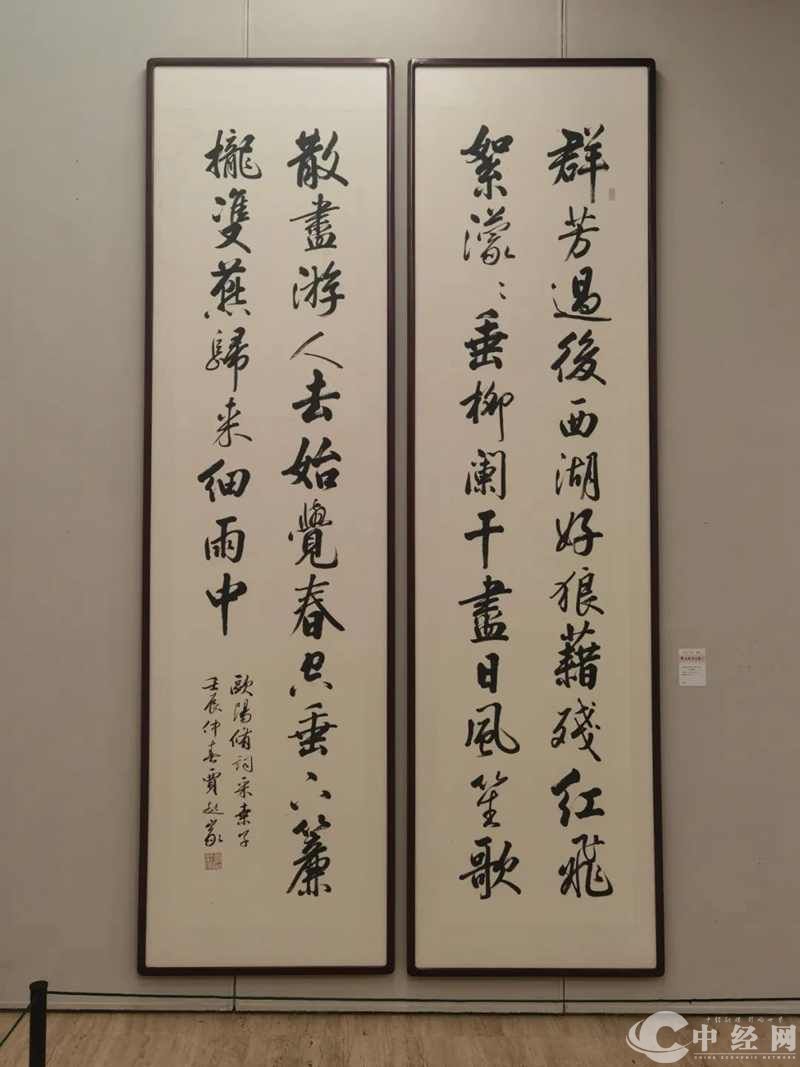 群芳過後西湖好狼藉殘紅飛
絮濛〻垂柳闌干盡日風笙歌
散盡游人去始覺春空垂下簾
櫳雙燕歸来細雨中
歐陽脩詞采桑子
壬辰仲春賈起家
中经网
CHINA ECONOMIC NETWORK